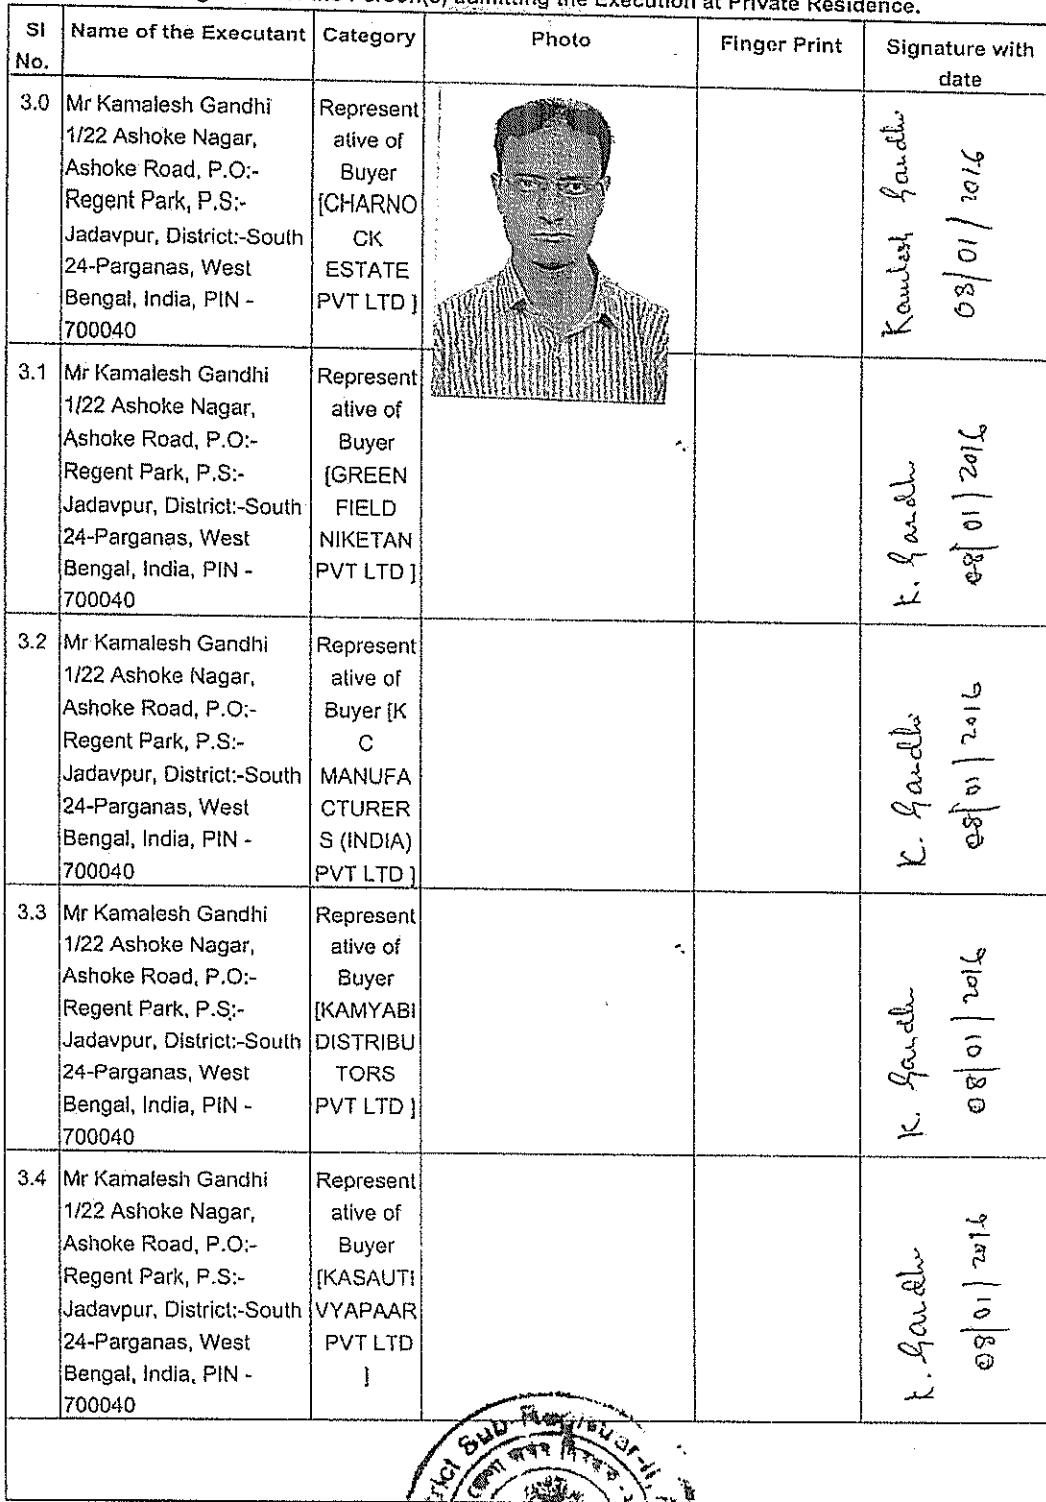 the Person(s) admitting the Execution at Private Residence.
SI No.
Name of the Executant
Category
Photo
Finger Print
Signature with date
3.0
Mr Kamalesh Gandhi
1/22 Ashoke Nagar,
Ashoke Road, P.O:-
Regent Park, P.S:-
Jadavpur, District:-South
24-Parganas, West
Bengal, India, PIN -
700040
Represent
ative of
Buyer
[CHARNO
CK
ESTATE
PVT LTD ]
Kamlesh Gandhi
08/01/2016
3.1
Mr Kamalesh Gandhi
1/22 Ashoke Nagar,
Ashoke Road, P.O:-
Regent Park, P.S:-
Jadavpur, District:-South
24-Parganas, West
Bengal, India, PIN -
700040
Represent
ative of
Buyer
[GREEN
FIELD
NIKETAN
PVT LTD ]
K. Gandhi
08/01/2016
3.2
Mr Kamalesh Gandhi
1/22 Ashoke Nagar,
Ashoke Road, P.O:-
Regent Park, P.S:-
Jadavpur, District:-South
24-Parganas, West
Bengal, India, PIN -
700040
Represent
ative of
Buyer [K
C
MANUFA
CTURER
S (INDIA)
PVT LTD ]
K. Gandhi
08/01/2016
3.3
Mr Kamalesh Gandhi
1/22 Ashoke Nagar,
Ashoke Road, P.O:-
Regent Park, P.S:-
Jadavpur, District:-South
24-Parganas, West
Bengal, India, PIN -
700040
Represent
ative of
Buyer
[KAMYABI
DISTRIBU
TORS
PVT LTD ]
K. Gandhi
08/01/2016
3.4
Mr Kamalesh Gandhi
1/22 Ashoke Nagar,
Ashoke Road, P.O:-
Regent Park, P.S:-
Jadavpur, District:-South
24-Parganas, West
Bengal, India, PIN -
700040
Represent
ative of
Buyer
[KASAUTI
VYAPAAR
PVT LTD
]
K. Gandhi
08/01/2016
Sub-Registrar-II